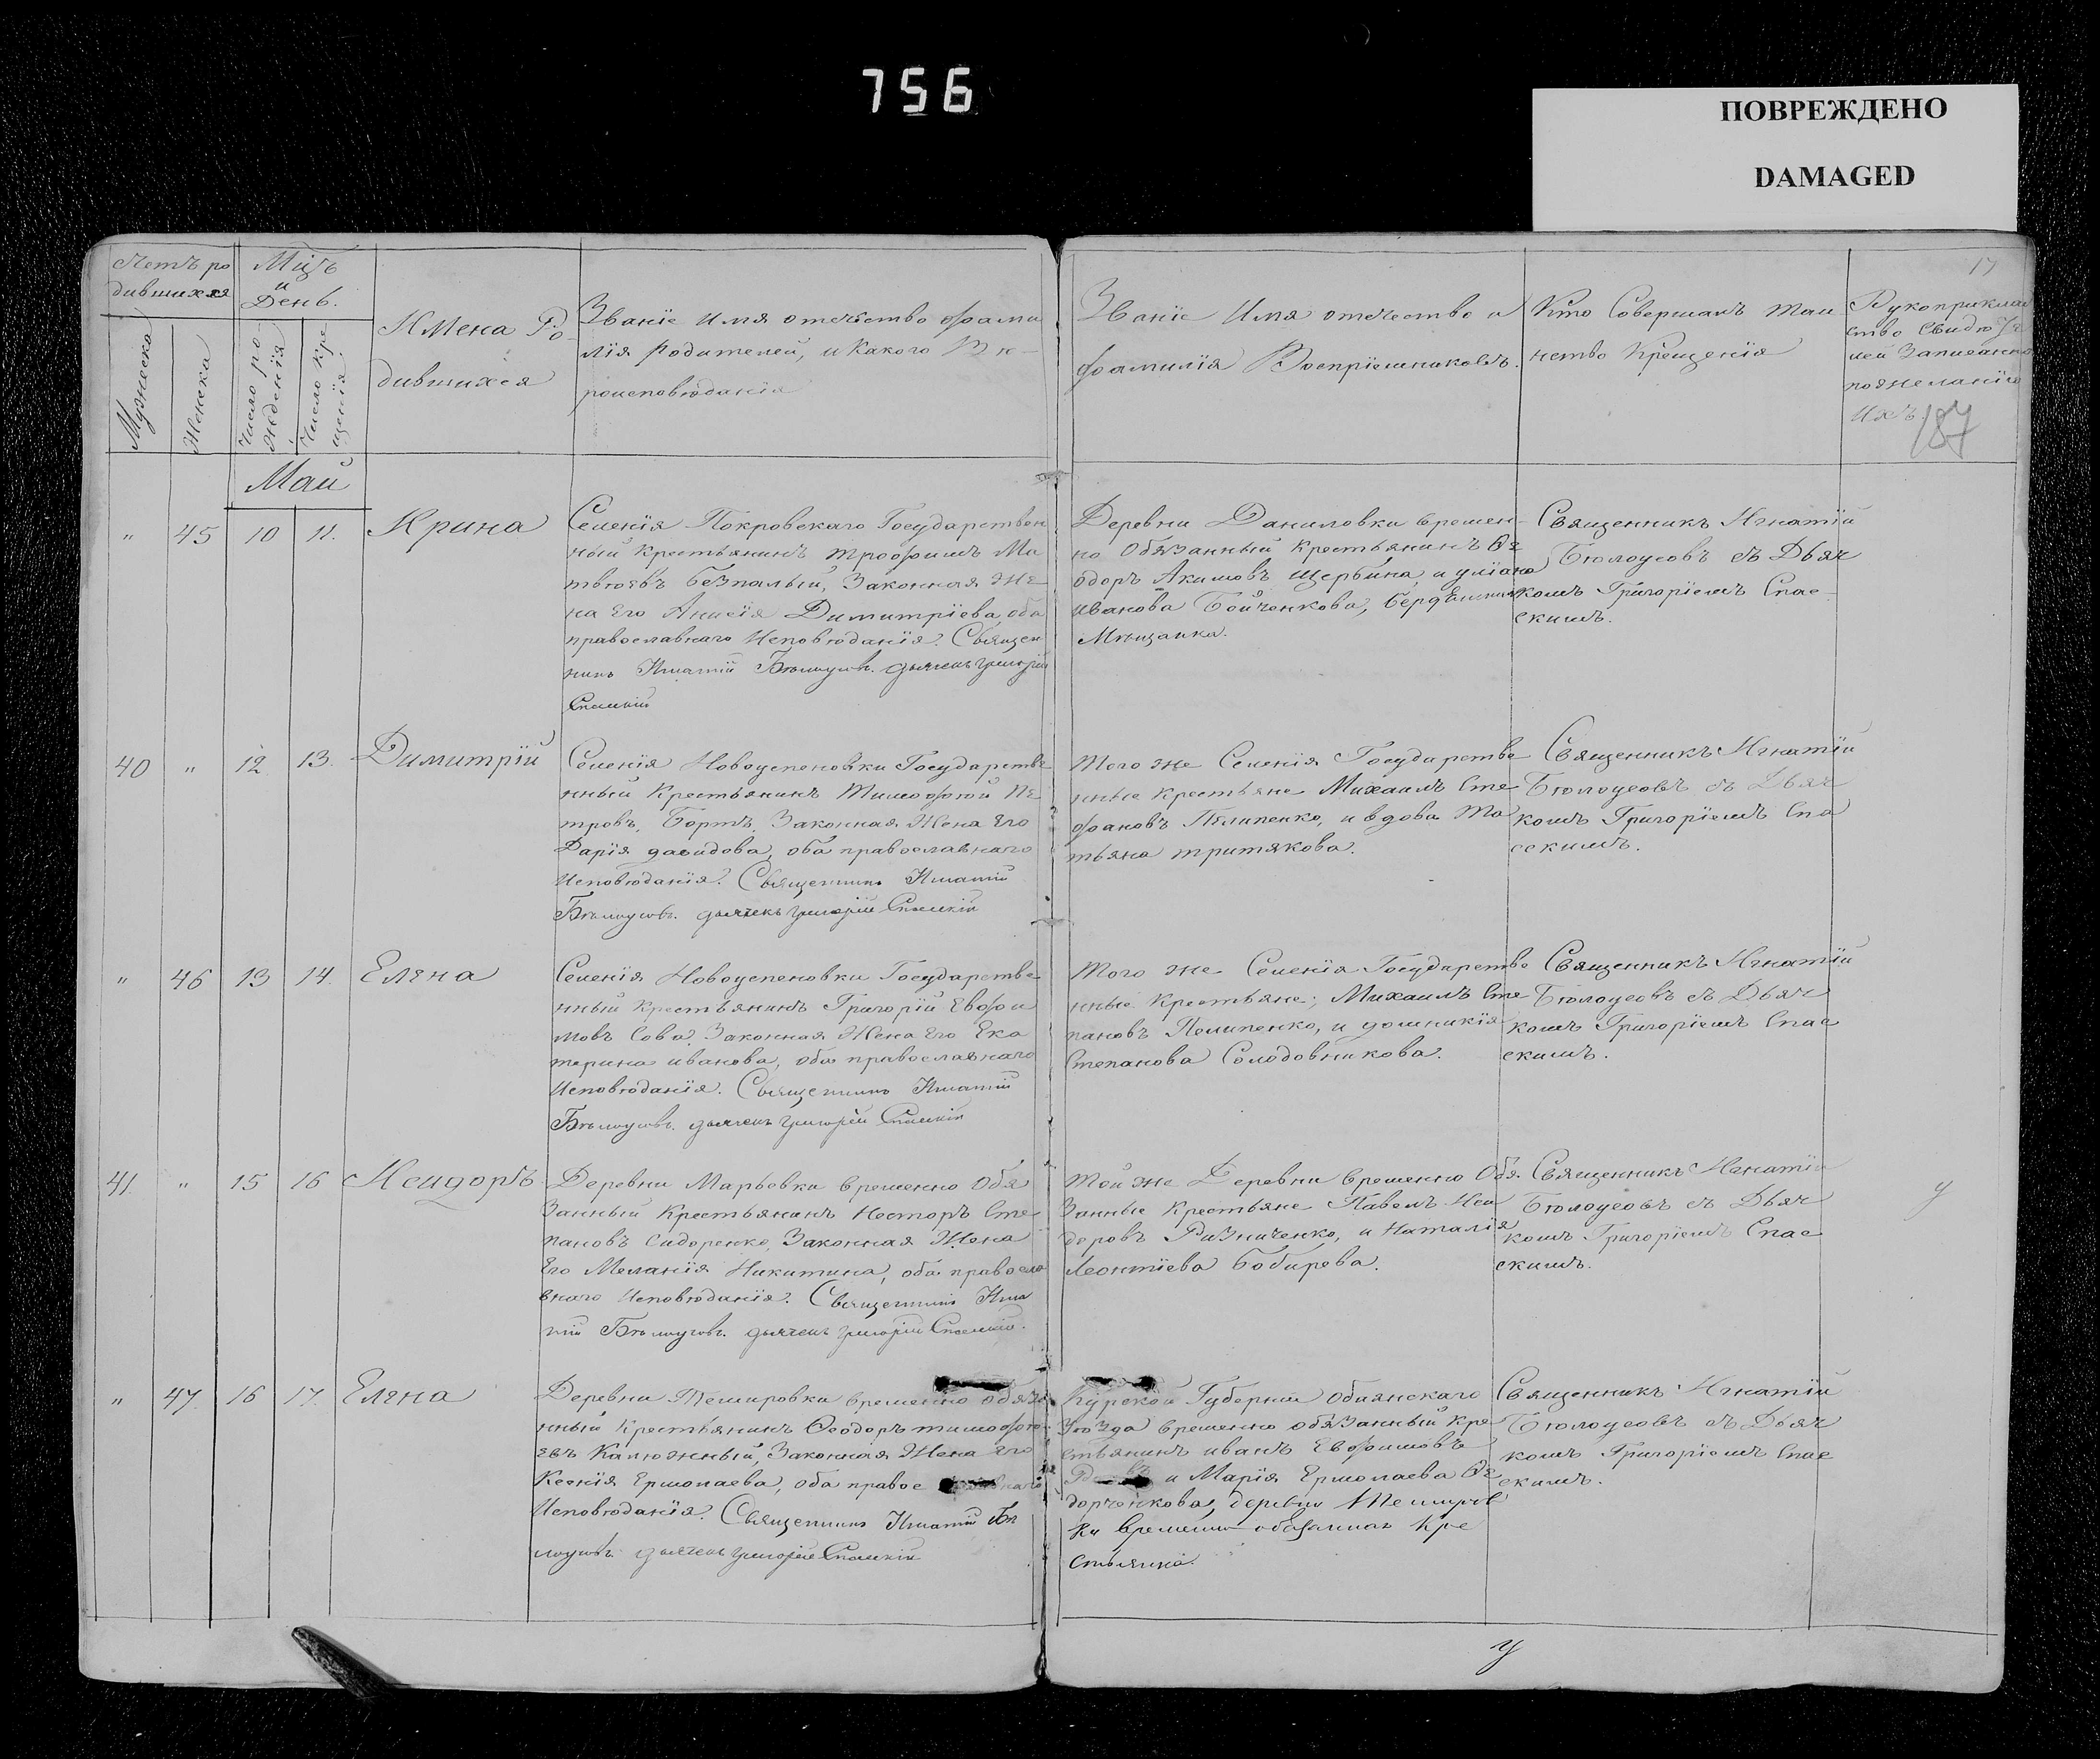 756
ПОВРЕЖДЕНО
DAMAGED
17
187
Счетъ ро
дившихся
Мужеска
Женска
Мцъ
и
День.
Число ро-
жденія
Число кре
щенія
Имена Ро-
дившихся
Званіе Имя отечество фами
лія Родителей, и Какого Вѣ-
роисповѣданія
Званіе Имя отечество и
фамилія Воспріемниковъ.
Кто Совершалъ таи
нство Крещенія
Рукоприклад
ство Свидѣте
лей Записано
по желанію
Ихъ.
Маи
" 45 10 11. Ирина
Селенія Покровскаго Государствен
ный Крестьянинъ Трофимъ Ма
твѣевъ Безпалый, Законная Же
на Его Анисія Димитріева, оба
православнаго Исповѣданія. Священ
никъ Игнатій Бѣлоусовъ. дьячекъ Григорій
Спасскій
Деревни Даниловки Времен-
но Обязанный Крестьянинъ Ѳе
одоръ Акимовъ Щербина, и уліана
Иванова Бойченкова, Бердянская
Мѣщанка.
Священникъ Игнатій
Бѣлоусовъ съ Дьяч
комъ Григоріемъ Спас-
скимъ.
40 " 12 13. Димитрій
Селенія Новоспеновки Государстве
нный Крестьянинъ Тимофѣй Пе
тровъ, Бортъ, Законная Жена Его
Дарія давидова, оба православнаго
Исповѣданія. Священникъ Игнатій
Бѣлоусовъ. дьячекъ Григорій Спасскій
Того же Селенія Государстве
нные крестьяне Михаилъ Сте
фановъ Пилипенко, и вдова Та
тьяна тритякова.
Священникъ Игнатій
Бѣлоусовъ съ Дьяч
комъ Григоріемъ Спа
сскимъ.
" 46 13 14. Елена
Селенія Новоспеновки Государстве
нный крестьянинъ Григорій Евфи
мовъ Сова, Законная Жена Его Ека
терина иванова, оба православнаго
Исповѣданія. Священникъ Игнатій
Бѣлоусовъ. дьячекъ Григорій Спасскій
Того же Селенія Государстве
нные Крестьяне; Михаилъ Сте
пановъ Пилипенко, и домникія
Степанова Солодовникова.
Священникъ Игнатій
Бѣлоусовъ съ Дьяч
комъ Григоріемъ Спас
скимъ.
41. " 15 16 Исидоръ
Деревни Марьевки Временно Обя
занный Крестьянинъ Несторъ Сте-
пановъ Сидоренко, Законная Жена
Его Меланія Никитина, оба правосла
внаго Исповѣданія. Священникъ Игна
тій Бѣлоусовъ. дьячекъ Григорій Спасскій.
Той же Деревни Временно Обя
занные Крестьяне Павелъ Иси
доровъ Ризниченко, и Наталія
Леонтіева Бобирева.
Священникъ Игнатій
Бѣлоусовъ съ Дьяч
комъ Григоріемъ Спас
скимъ.
" 47. 16 17. Елена
Деревни Темировки Временно обяза
нный Крестьянинъ Ѳеодоръ тимофѣ-
евъ Калюжный, Законная Жена Его
Ксенія Ермолаева, оба православнаго
Исповѣданія. Священникъ Игнатій Бѣ
лоусовъ. дьячекъ Григорій Спасскій
Курской Губерніи Обоянскаго
Уѣзда Временно обязанный Кре
стьянинъ иванъ Евфимовъ
и Марія Ермолаева Ѳе
дорченкова, деревни Темиров
ки Временно обязанная Кре
стьянка.
Священникъ Игнатій
Бѣлоусовъ съ Дьяч
комъ Григоріемъ Спас
скимъ.